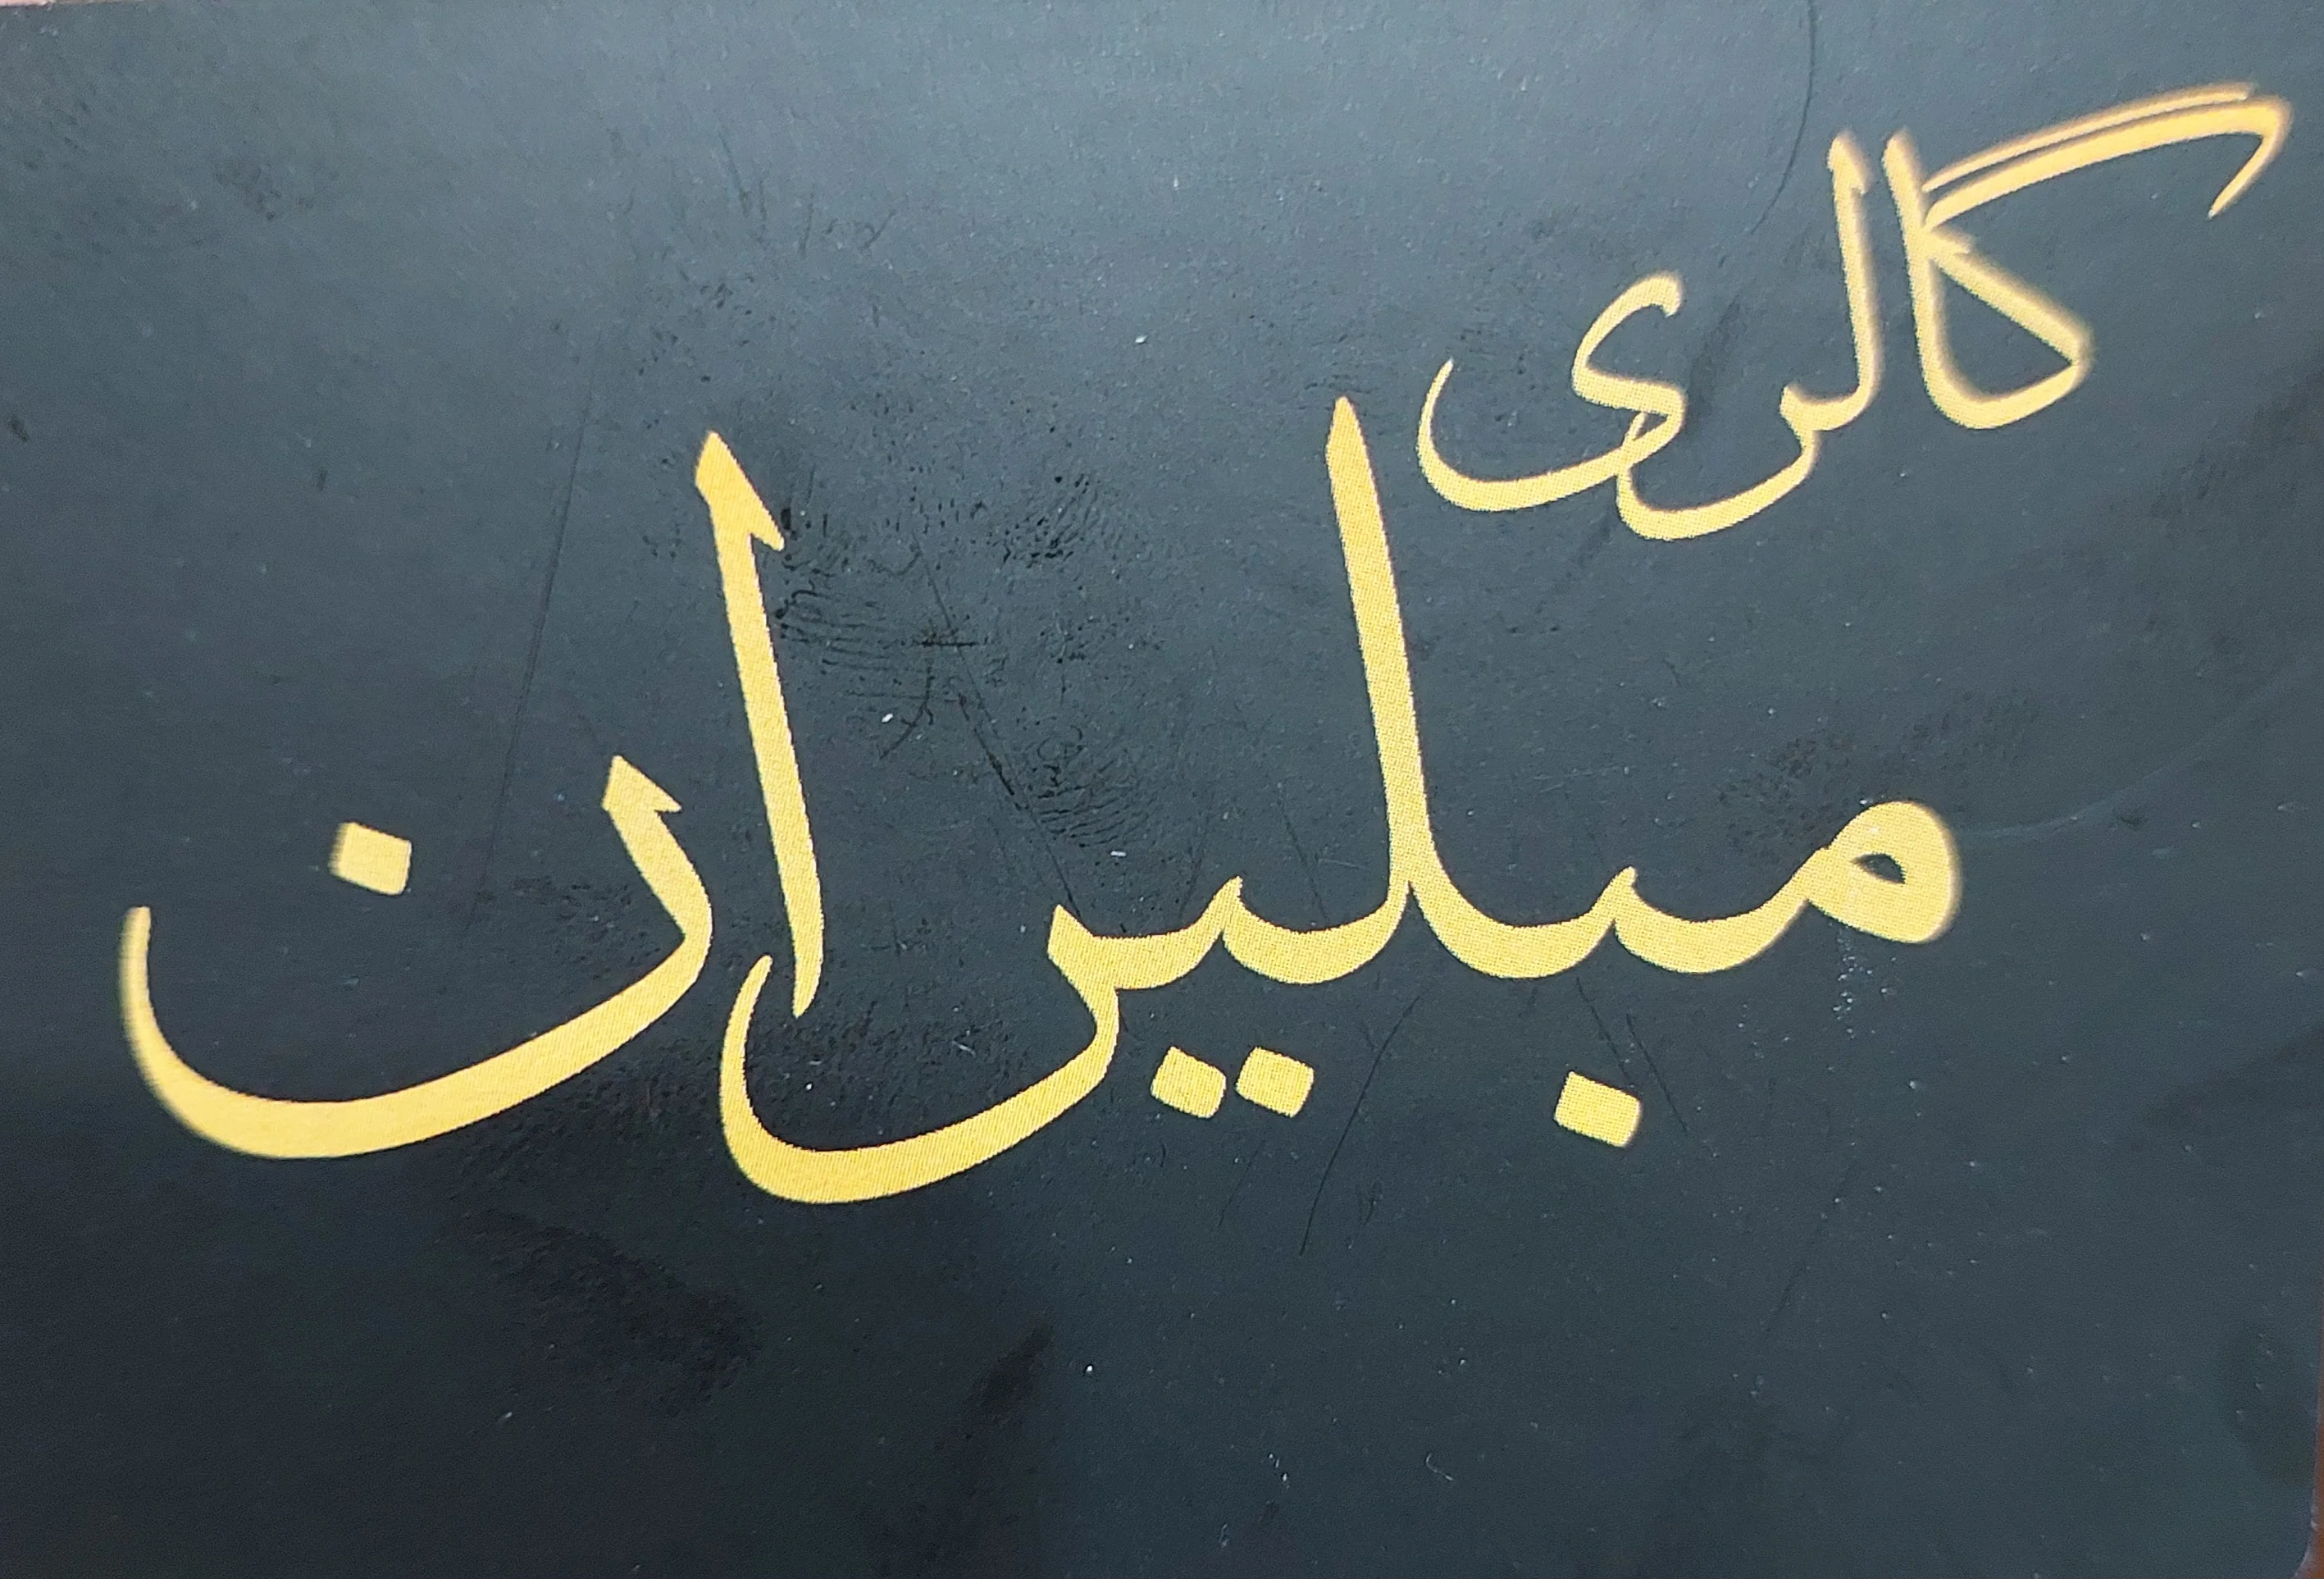 گالری
مبلیران